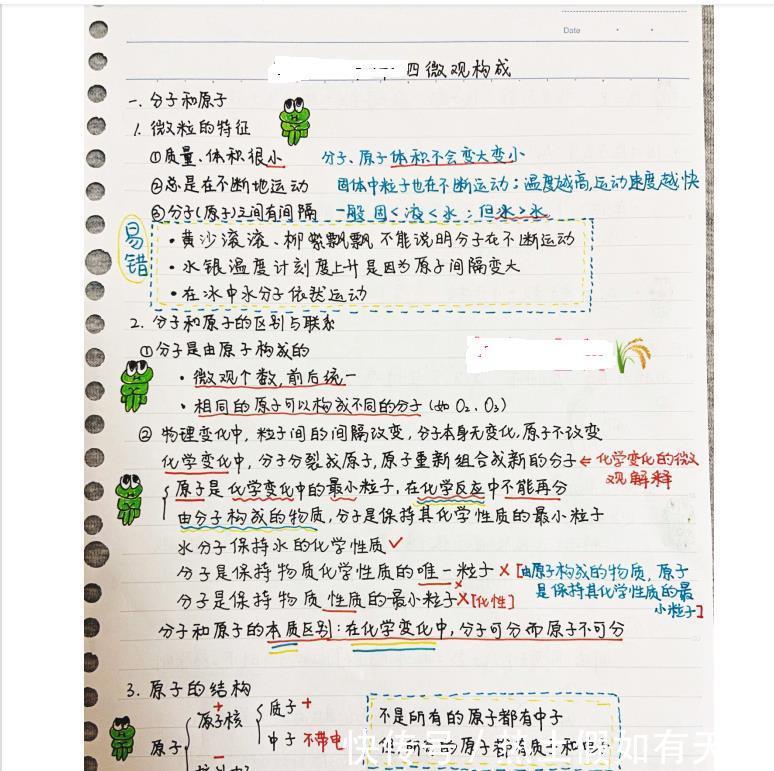 Date
四 微观构成
一. 分子和原子
1. 微粒的特征
①质量、体积很小 分子、原子体积不会变大变小
②总是在不断地运动 固体中粒子也在不断运动；温度越高,运动速度越快
③分子(原子)之间有间隔 一般 固<液<
易错
• 黄沙滚滚、柳絮飘飘 不能说明分子在不断运动
• 水银温度计刻度上升是因为原子间隔变大
• 在冰中水分子依然运动
2. 分子和原子的区别与联系
①分子是由原子构成的
• 微观个数,前后统一
• 相同的原子可以构成不同的分子 (如 O₂、O₃)
② 物理变化中, 粒子间的间隔改变, 分子本身无变化,原子不改变
化学变化中, 分子分裂成原子, 原子重新组合成新的分子 ← 化学变化的微观解释
原子是化学变化中的最小粒子, 在化学反应中不能再分
由分子构成的物质, 分子是保持其化学性质的最小粒子
水分子保持水的化学性质 ✓
分子是保持物质化学性质的唯一粒子 × [由原子构成的物质, 原子是保持其化学性质的最小粒子]
分子是保持物质性质的最小粒子 × [化性]
分子和原子的本质区别: 在化学变化中, 分子可分而原子不可分
3. 原子的结构
原子 原子核 + 质子 +
中子 不带电
−
不是所有的原子都有中子
原子都有质子和
快传号 / 热土假如有天